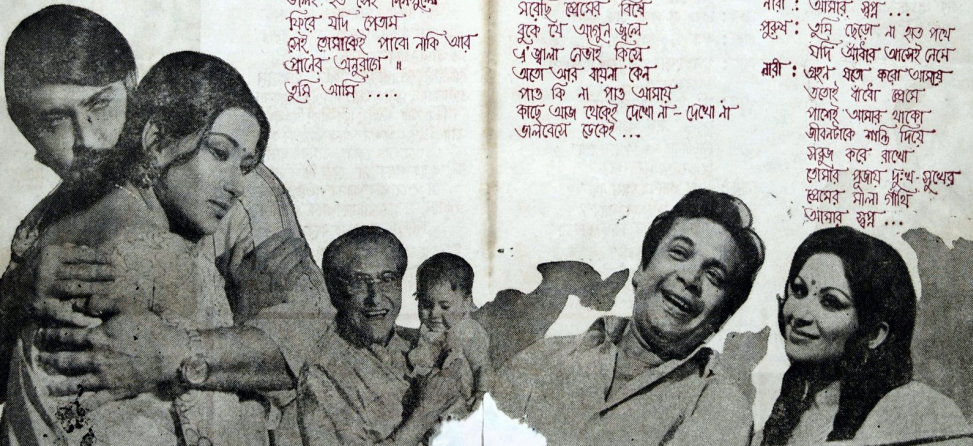 ফিরে যদি পেতাম
সেই তোমাকেই পাবো নাকি আর
প্রানের অনুরাগে ॥
তুমি আমি ....
মরেছি প্রেমের বিষে
বুকে যে আগুন জ্বলে
এ জ্বালা নেভাই কিসে
পাও কি না পাও আমায়
কাছে আজ থেকেই দেখো না - দেখো না
ভালবেসে ডেকেই ...
নারী : আমার স্বপ্ন ...
পুরুষ : তুমি ছেড়ো না হাত পথে
যদি আঁধার আসেই নেমে
নারী : গ্রহন যতো করো আমায়
ততোই বাঁধো প্রেমে
পাশেই আমার থাকো
জীবনটাকে শান্তি দিয়ে
সবুজ করে রাখো
তোমার পূজায় দুঃখ-সুখের
প্রেমের মালা গাঁথি
আমার স্বপ্ন ...